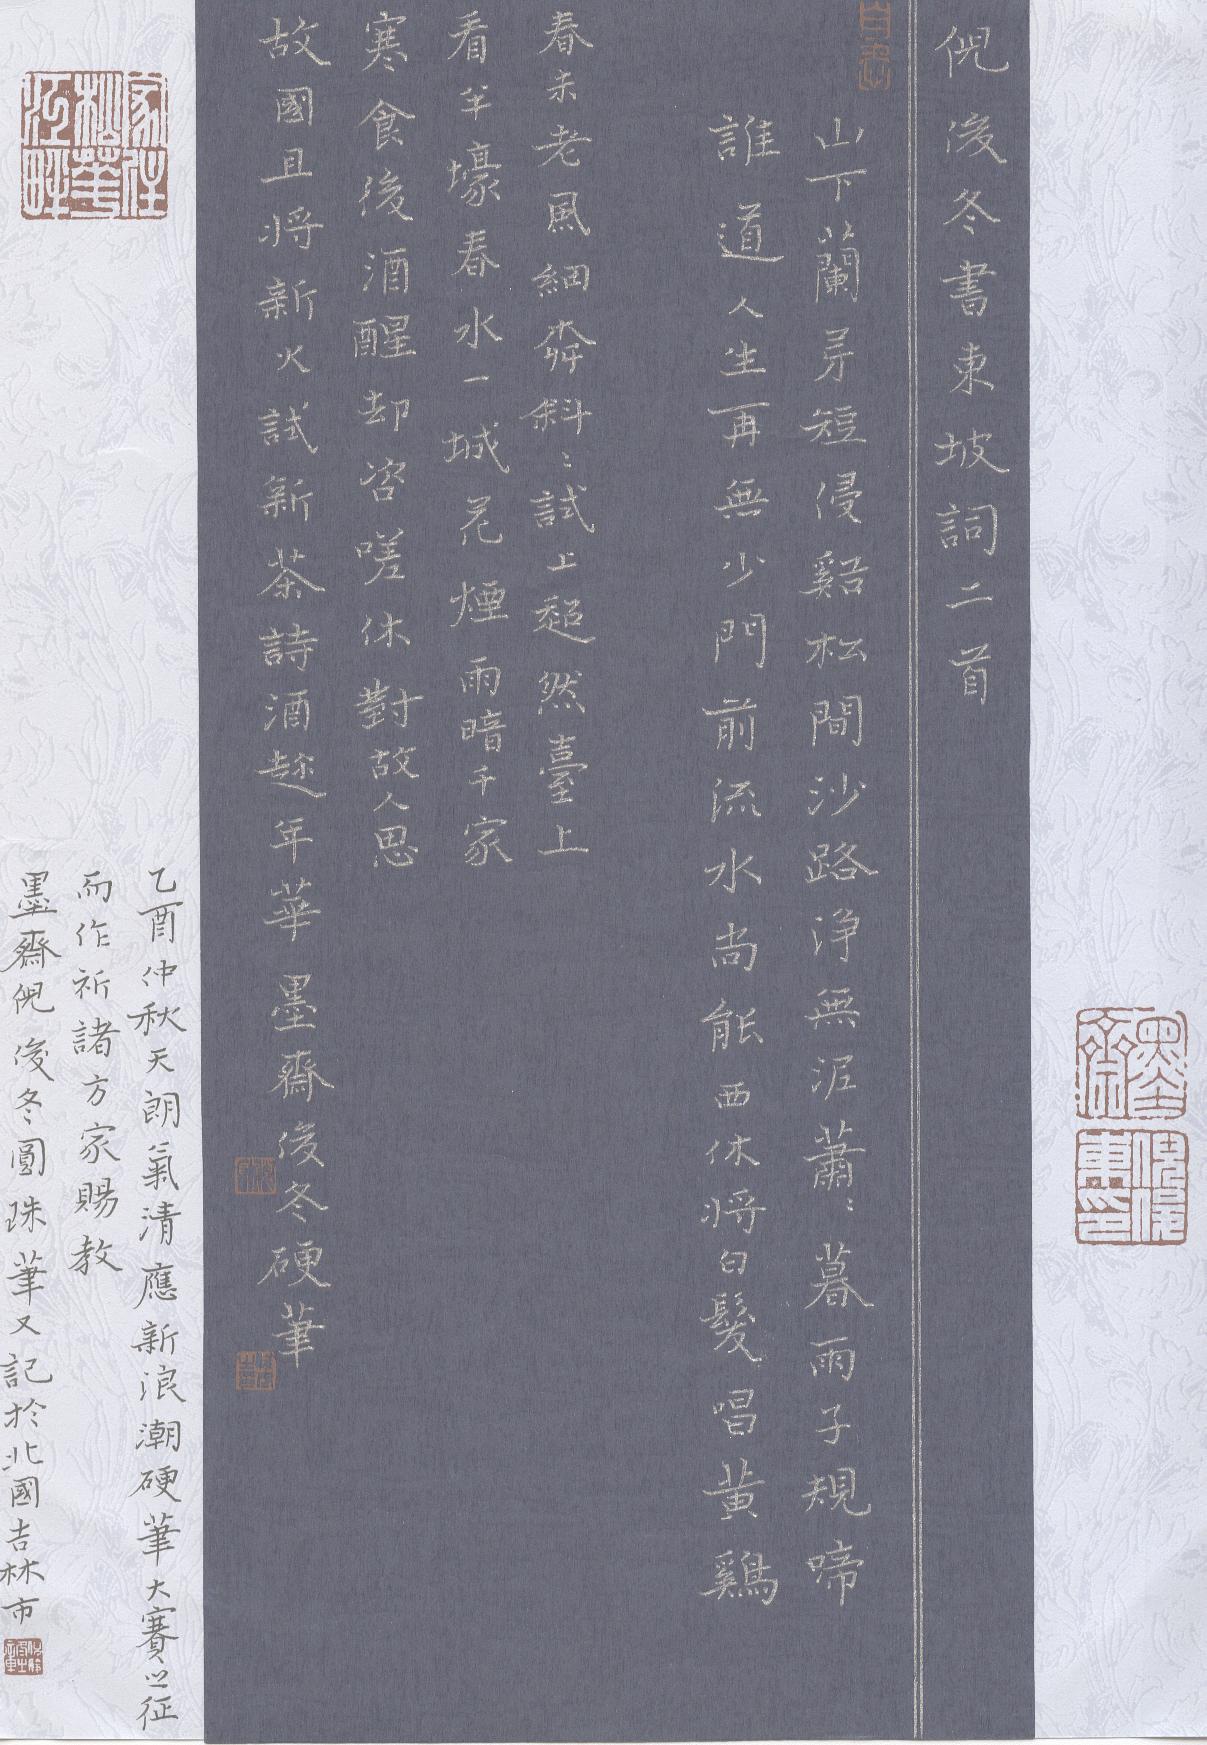 倪俊冬書東坡詞二首
山下蘭芽短侵谿松間沙路淨無泥蕭〻暮雨子規啼
誰道人生再無少門前流水尚能西休將白髮唱黃鷄
春未老風細桺斜〻試上超然臺上
看半壕春水一城花煙雨暗千家
寒食後酒醒却咨嗟休對故人思
故國且將新火試新茶詩酒趂年華 墨齋俊冬硬筆
乙酉仲秋天朗氣清應新浪潮硬筆大賽之征
而作祈諸方家賜教
墨齋倪俊冬圓珠筆又記於北國吉林市
家住松花江畔
墨齋
倪俊東印